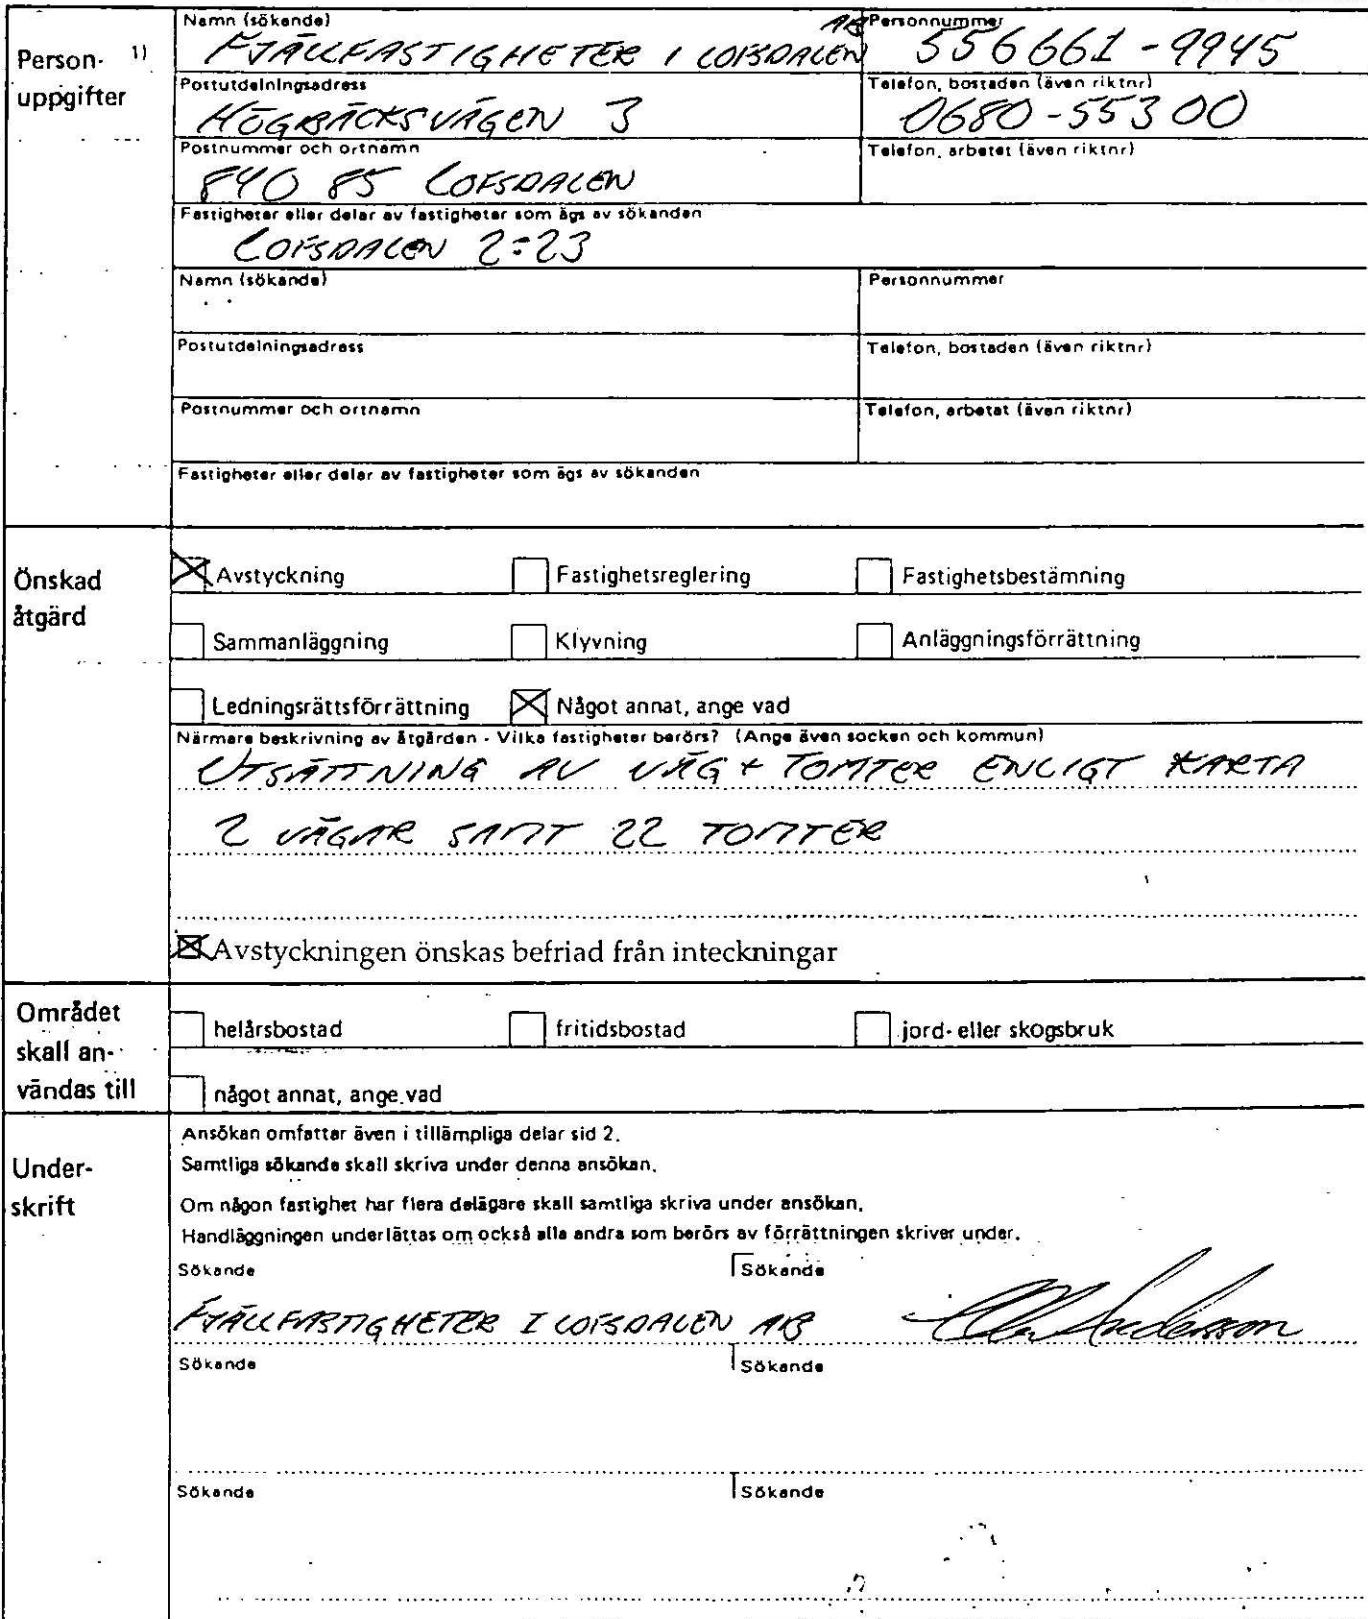 Person- 1)
uppgifter
Namn (sökande)
FJÄLLFASTIGHETER I LOFSDALEN AB
Personnummer
556661-9945
Postutdelningsadress
HÖGBÄCKSVÄGEN 3
Telefon, bostaden (även riktnr)
0680-55300
Postnummer och ortnamn
840 85 LOFSDALEN
Telefon, arbetet (även riktnr)
Fastigheter eller delar av fastigheter som ägs av sökanden
LOFSDALEN 2:23
Namn (sökande)
Personnummer
Postutdelningsadress
Telefon, bostaden (även riktnr)
Postnummer och ortnamn
Telefon, arbetat (även riktnr)
Fastigheter eller delar av fastigheter som ägs av sökanden
Önskad
åtgärd
Avstyckning Fastighetsreglering Fastighetsbestämning
Sammanläggning Klyvning Anläggningsförrättning
Ledningsrättsförrättning Något annat, ange vad
Närmare beskrivning av åtgärden - Vilka fastigheter berörs? (Ange även socken och kommun)
UTSÄTTNING AV VÄG + TOMTER ENLIGT KARTA
2 VÄGAR SAMT 22 TOMTER
Avstyckningen önskas befriad från inteckningar
Området
skall an-
vändas till
helårsbostad fritidsbostad jord- eller skogsbruk
något annat, ange vad
Under-
skrift
Ansökan omfattar även i tillämpliga delar sid 2.
Samtliga sökande skall skriva under denna ansökan.
Om någon fastighet har flera delägare skall samtliga skriva under ansökan.
Handläggningen underlättas om också alla andra som berörs av förrättningen skriver under.
Sökande Sökande
FJÄLLFASTIGHETER I LOFSDALEN AB Andersson
Sökande Sökande
Sökande Sökande